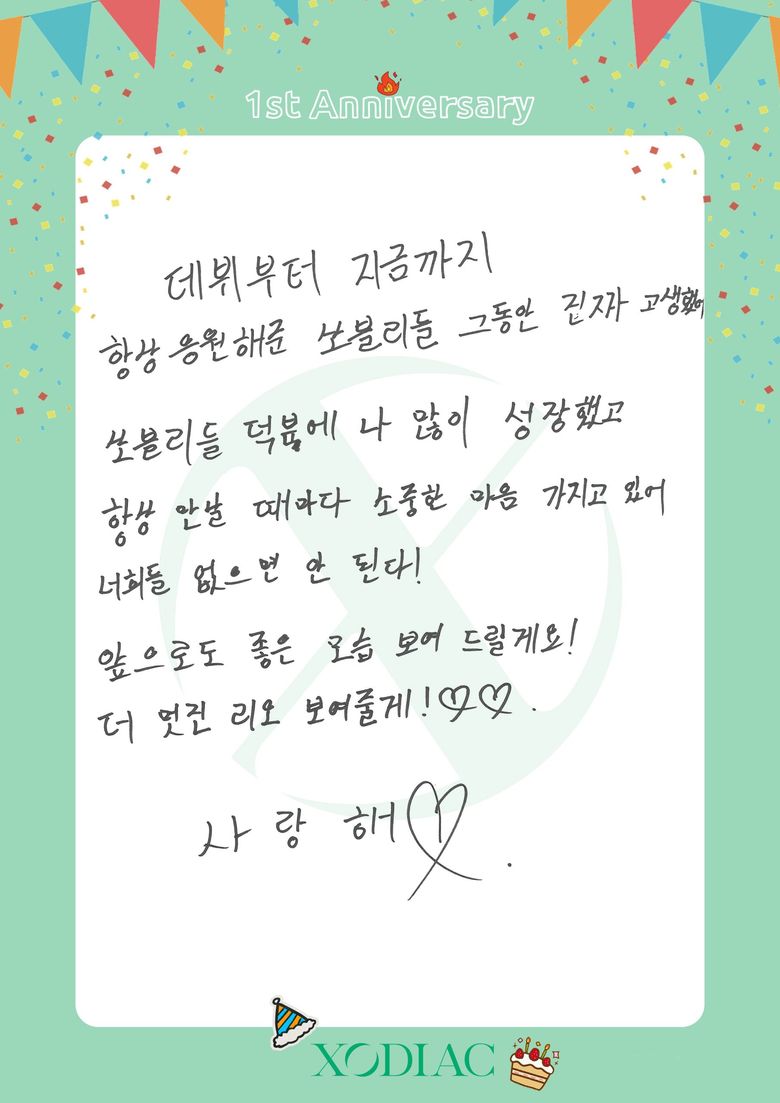 1st Anniversary
데뷔부터 지금까지
항상 응원해준 쏘블리들 그동안 진짜 고생했어
쏘블리들 덕분에 나 많이 성장했고
항상 만날 때마다 소중한 마음 가지고 있어
너희들 없으면 안 된다!
앞으로도 좋은 모습 보여 드릴게요!
더 멋진 리오 보여줄게!♡♡.
사랑해♡.
XODIAC